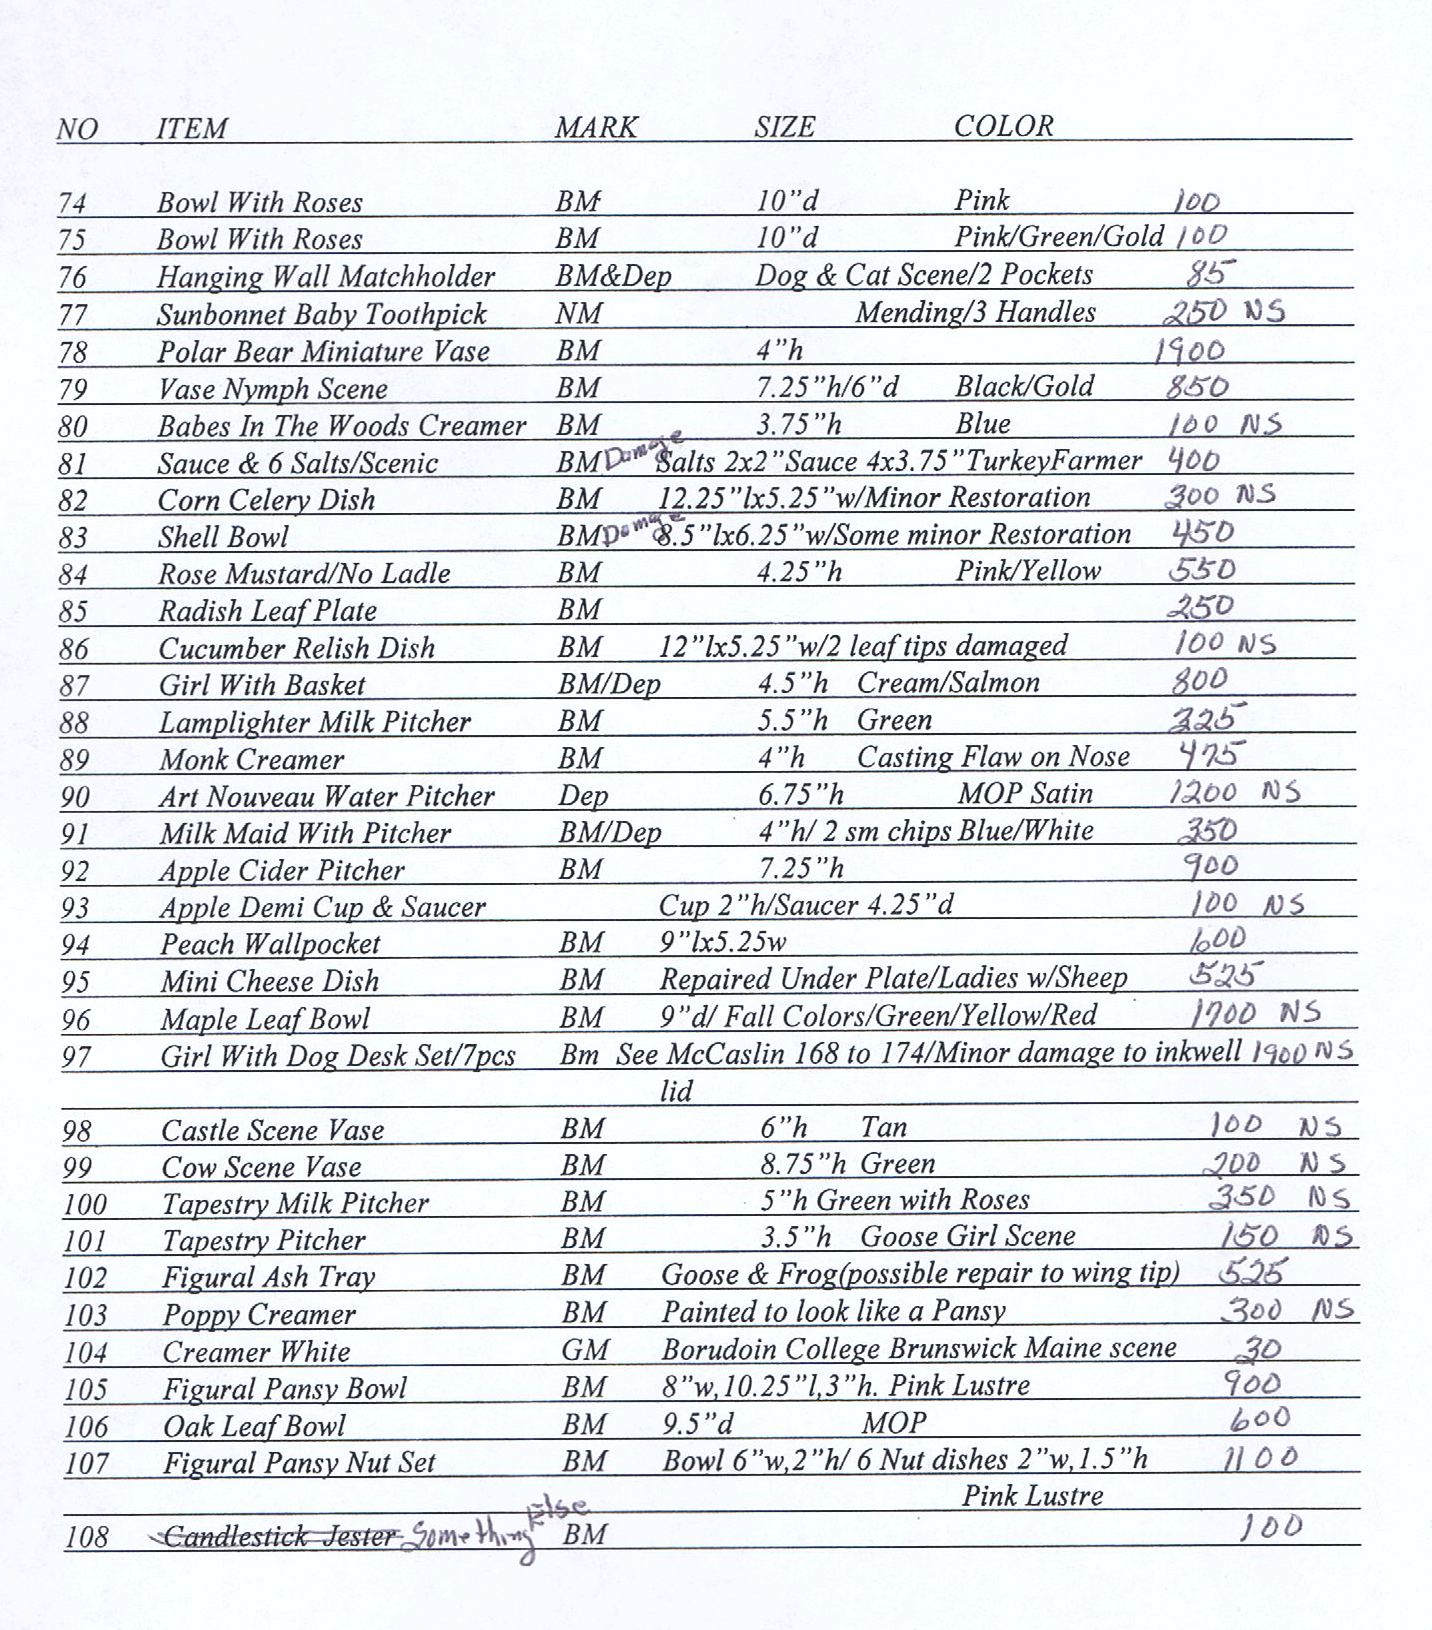 NO ITEM MARK SIZE COLOR
74 Bowl With Roses BM 10"d Pink 100
75 Bowl With Roses BM 10"d Pink/Green/Gold 100
76 Hanging Wall Matchholder BM&Dep Dog & Cat Scene/2 Pockets 85
77 Sunbonnet Baby Toothpick NM Mending/3 Handles 250 NS
78 Polar Bear Miniature Vase BM 4"h 1900
79 Vase Nymph Scene BM 7.25"h/6"d Black/Gold 850
80 Babes In The Woods Creamer BM 3.75"h Blue 100 NS
81 Sauce & 6 Salts/Scenic BM Damage Salts 2x2"Sauce 4x3.75"TurkeyFarmer 400
82 Corn Celery Dish BM 12.25"lx5.25"w/Minor Restoration 300 NS
83 Shell Bowl BM Damage 8.5"lx6.25"w/Some minor Restoration 450
84 Rose Mustard/No Ladle BM 4.25"h Pink/Yellow 550
85 Radish Leaf Plate BM 250
86 Cucumber Relish Dish BM 12"lx5.25"w/2 leaf tips damaged 100 NS
87 Girl With Basket BM/Dep 4.5"h Cream/Salmon 800
88 Lamplighter Milk Pitcher BM 5.5"h Green 225
89 Monk Creamer BM 4"h Casting Flaw on Nose 475
90 Art Nouveau Water Pitcher Dep 6.75"h MOP Satin 1200 NS
91 Milk Maid With Pitcher BM/Dep 4"h/ 2 sm chips Blue/White 350
92 Apple Cider Pitcher BM 7.25"h 900
93 Apple Demi Cup & Saucer Cup 2"h/Saucer 4.25"d 100 NS
94 Peach Wallpocket BM 9"lx5.25w 600
95 Mini Cheese Dish BM Repaired Under Plate/Ladies w/Sheep 525
96 Maple Leaf Bowl BM 9"d/ Fall Colors/Green/Yellow/Red 1700 NS
97 Girl With Dog Desk Set/7pcs Bm See McCaslin 168 to 174/Minor damage to inkwell 1900 NS
lid
98 Castle Scene Vase BM 6"h Tan 100 NS
99 Cow Scene Vase BM 8.75"h Green 200 NS
100 Tapestry Milk Pitcher BM 5"h Green with Roses 350 NS
101 Tapestry Pitcher BM 3.5"h Goose Girl Scene 150 NS
102 Figural Ash Tray BM Goose & Frog(possible repair to wing tip) 525
103 Poppy Creamer BM Painted to look like a Pansy 300 NS
104 Creamer White GM Borudoin College Brunswick Maine scene 30
105 Figural Pansy Bowl BM 8"w,10.25"l,3"h. Pink Lustre 900
106 Oak Leaf Bowl BM 9.5"d MOP 600
107 Figural Pansy Nut Set BM Bowl 6"w,2"h/ 6 Nut dishes 2"w,1.5"h 1100
Pink Lustre
108 Candlestick Jester Something Else BM 100